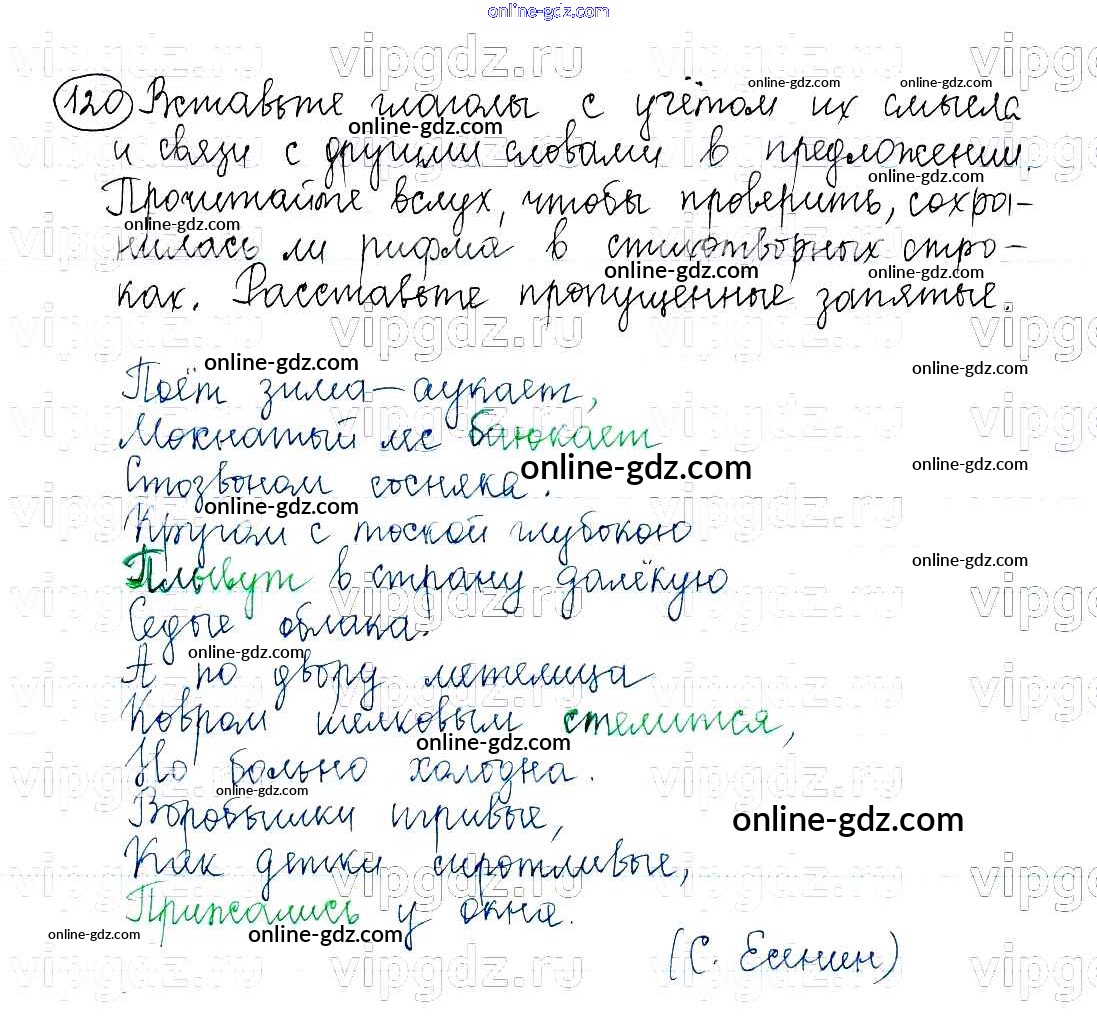 online-gdz.com
vipgdz.ru vipgdz.ru vipgdz.ru vipg
online-gdz.com online-gdz.com
120 Вставьте глаголы с учётом их смысла
online-gdz.com
и связи с другими словами в предложении.
online-gdz.com
Прочитайте вслух, чтобы проверить, сохра-
online-gdz.com
нилась ли рифма в стихотворных стро-
online-gdz.com online-gdz.com
ках. Расставьте пропущенные запятые.
vipgdz.ru vipgdz.ru vipgdz.ru vipg
online-gdz.com online-gdz.com
Поёт зима – аукает,
Мохнатый лес баюкает
online-gdz.com online-gdz.com
Стозвоном сосняка.
online-gdz.com
Кругом с тоской глубокою
online-gdz.com
Плывут в страну далёкую
Седые облака.
online-gdz.com
А по двору метелица
Ковром шелковым стелится,
online-gdz.com
Но больно холодна.
online-gdz.com
Воробышки игривые,
online-gdz.com
Как детки сиротливые,
Прижались у окна.
online-gdz.com online-gdz.com
(С. Есенин)